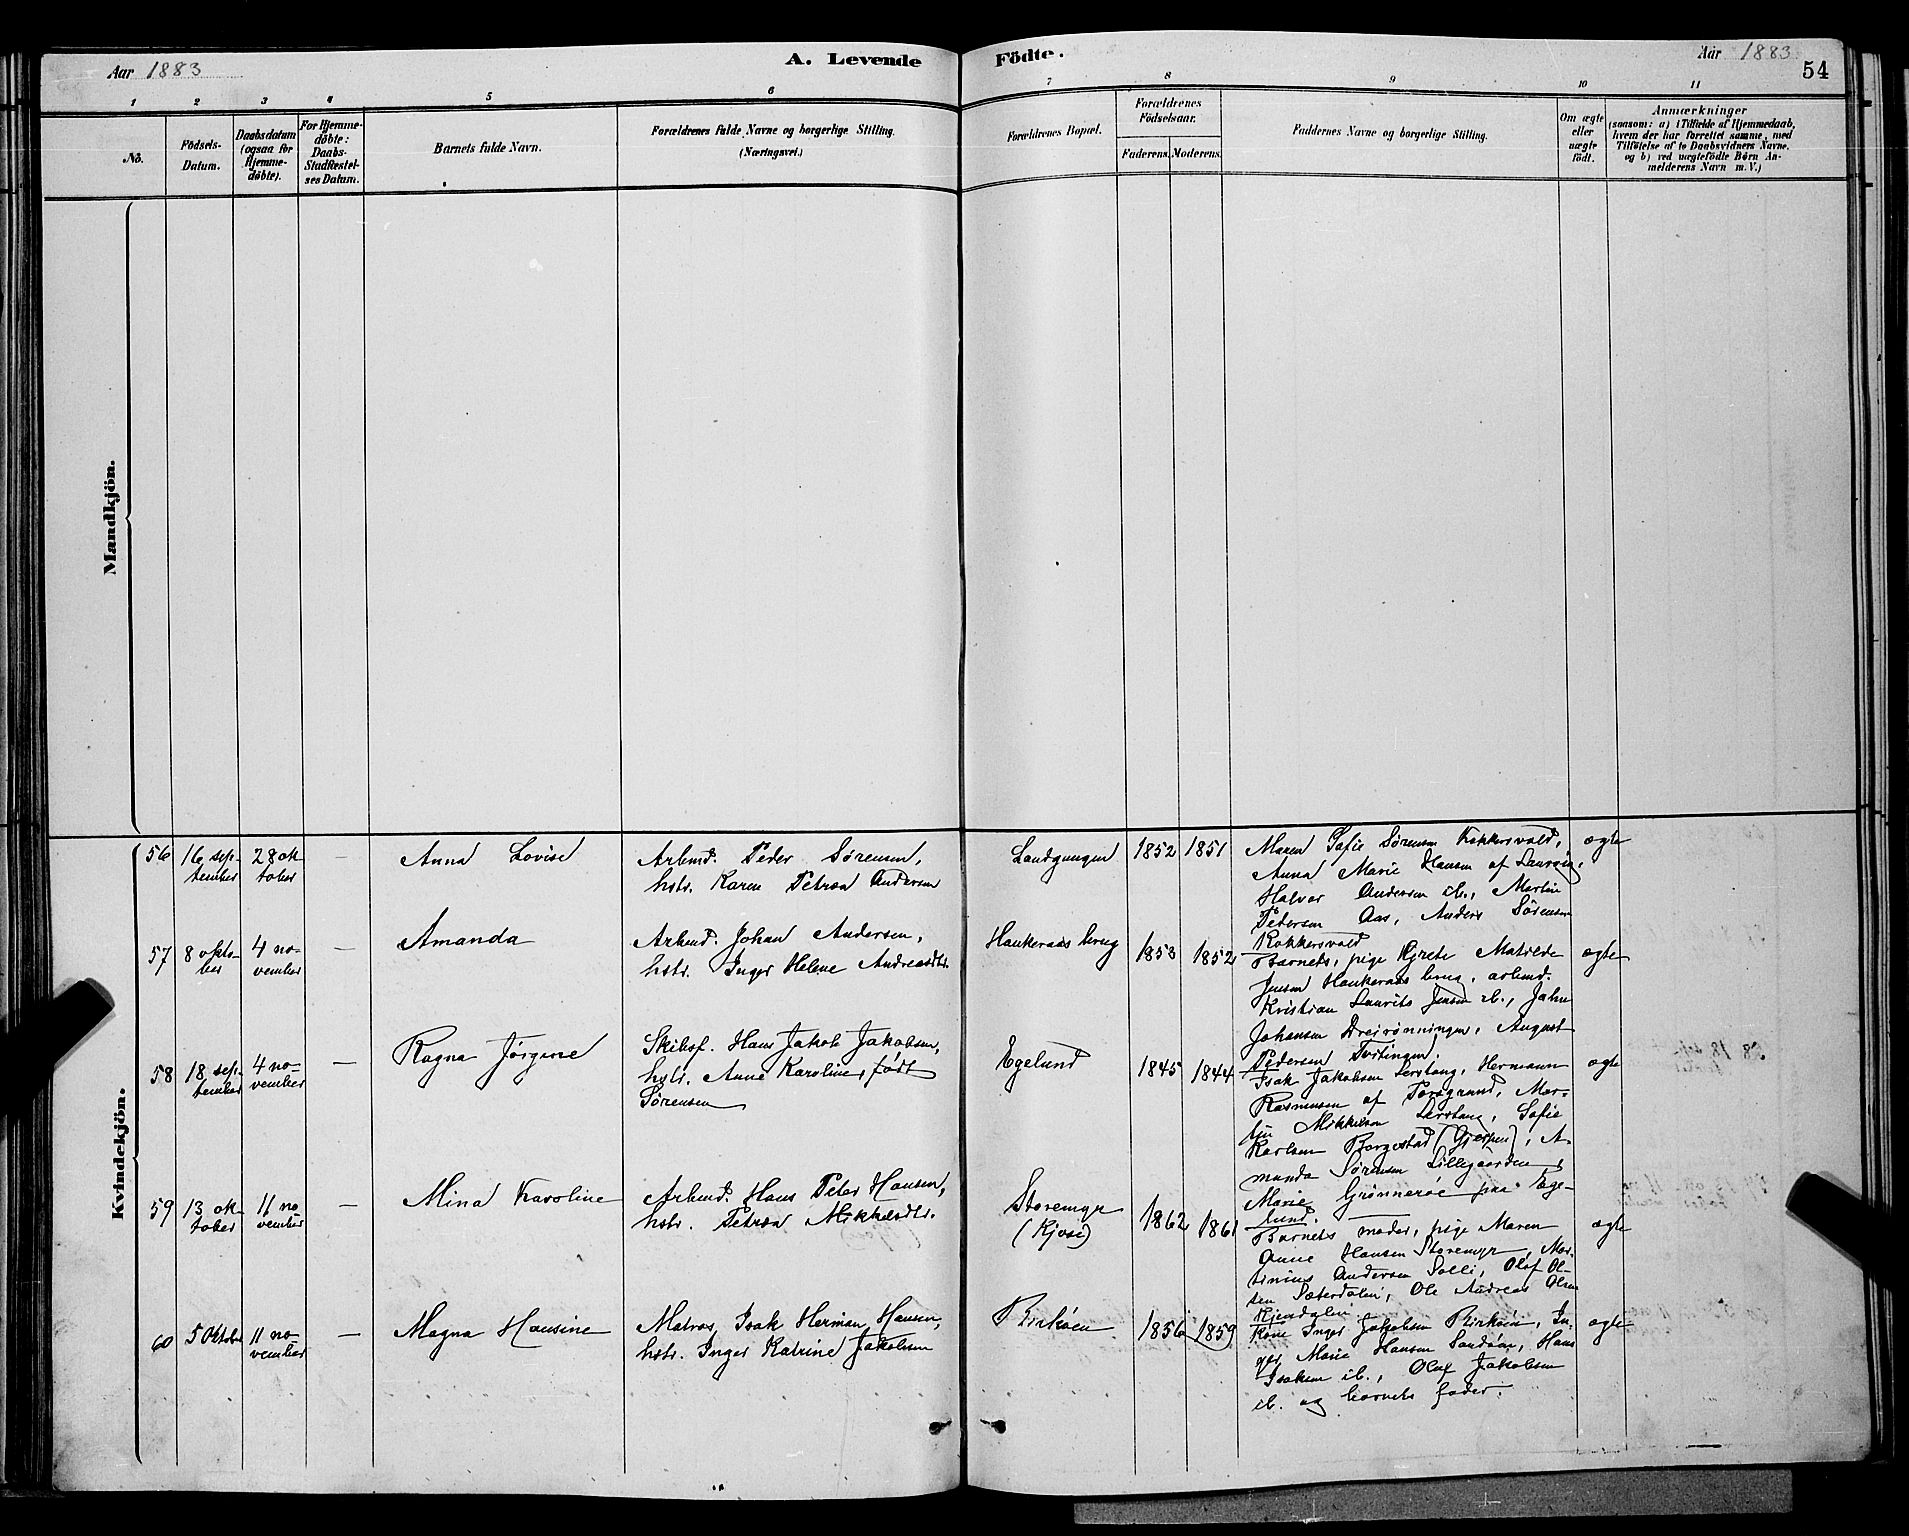 Aar 1883
A. Levende
Födte.
Aar 1883
54
1
2
3
4
5
6
7
8
9
10
11
No.
Födsels-
Datum.
Daabsdatum
(ogsaa for
Hjemme-
döbte).
For Hjemme-
döbte:
Daabs-
Stadfæstel-
ses Datum.
Barnets fulde Navn.
Forældrenes fulde Navne og borgerlige Stilling.
(Næringsvei.)
Forældrenes Bopæl.
Forældrenes
Födselsaar.
Faderens.
Moderens.
Faddernes Navne og borgerlige Stilling.
Om ægte
eller
uægte
födt.
Anmærkninger
(saasom: a) i Tilfælde af Hjemmedaab,
hvem der har forrettet samme, med
Tilföielse af to Daabsvidners Navne.
og b) ved uægtefödte Börn An-
melderens Navn m. V.)
Mandkjön.
Kvindekjön.
56
16 sep-
tember
28 ok
tober
—
Anna Lovise
Arbmd. Peder Sørensen,
hstr. Karen Petrea Andersen
Landgangen
1852
1851
Maren Sofie Sørensen Kokkersvold,
Anna Marie Hansen af Laurvig,
Halvor Andersen ib., Martin
Pedersen Aas, Anders Sørensen
Kokkersvold
ægte
57
8 okto-
ber
4 no-
vember
—
Amanda
Arbmd. Johan Andersen,
hstr. Inger Helene Andreasdtr.
Haukeraas brug
1853
1852
Barnets, pige Grete Matilde
Jensen Haukeraas brug, arbmd.
Kristian Laurits Jensen ib., John
Johansen Dreirønningen, August
Pedersen Tvitingen.
ægte
58
18 sep-
tember
4 no-
vember
—
Ragna Jørgine
Skibsf. Hans Jakob Jakobsen,
hstr. Anne Karoline, født
Sørensen
Egelund
1845
1844
Isak Jakobsen Lerstang, Hermann
Rasmussen af Porsgrund, Mar-
tin Mikkelsen Lerstang, Sofie
Karlsen Borgestad (Gjerpen), A-
manda Sørensen Lillegaarden,
Marie Grønnerøe paa Ege-
lund.
ægte
59
13 ok
tober
11 no
vember
—
Mina Karoline
Arbmd. Hans Peter Hansen,
hstr. Petrea Mikkelsdtr.
Storemyr
(Kjose)
1862
1861
Barnets moder, pige Maren
Anne Hansen Storemyr, Mar-
tinius Andersen Solli, Olaf Ol-
sen Sæterdalen, Ole Andreas Olsen
Kjendalen
ægte
60
5 Oktober
11 no-
vember
—
Magna Hansine
Matros Isak Herman Hansen,
hstr. Inger Katrine Jakobsen
Birkøen
1856
1859
Kone Inger Jakobsen Birkøen, In-
ger Marie Hansen Sandøen, Hans
Isaksen ib., Oluf Jakobsen
ib. og barnets fader.
ægte